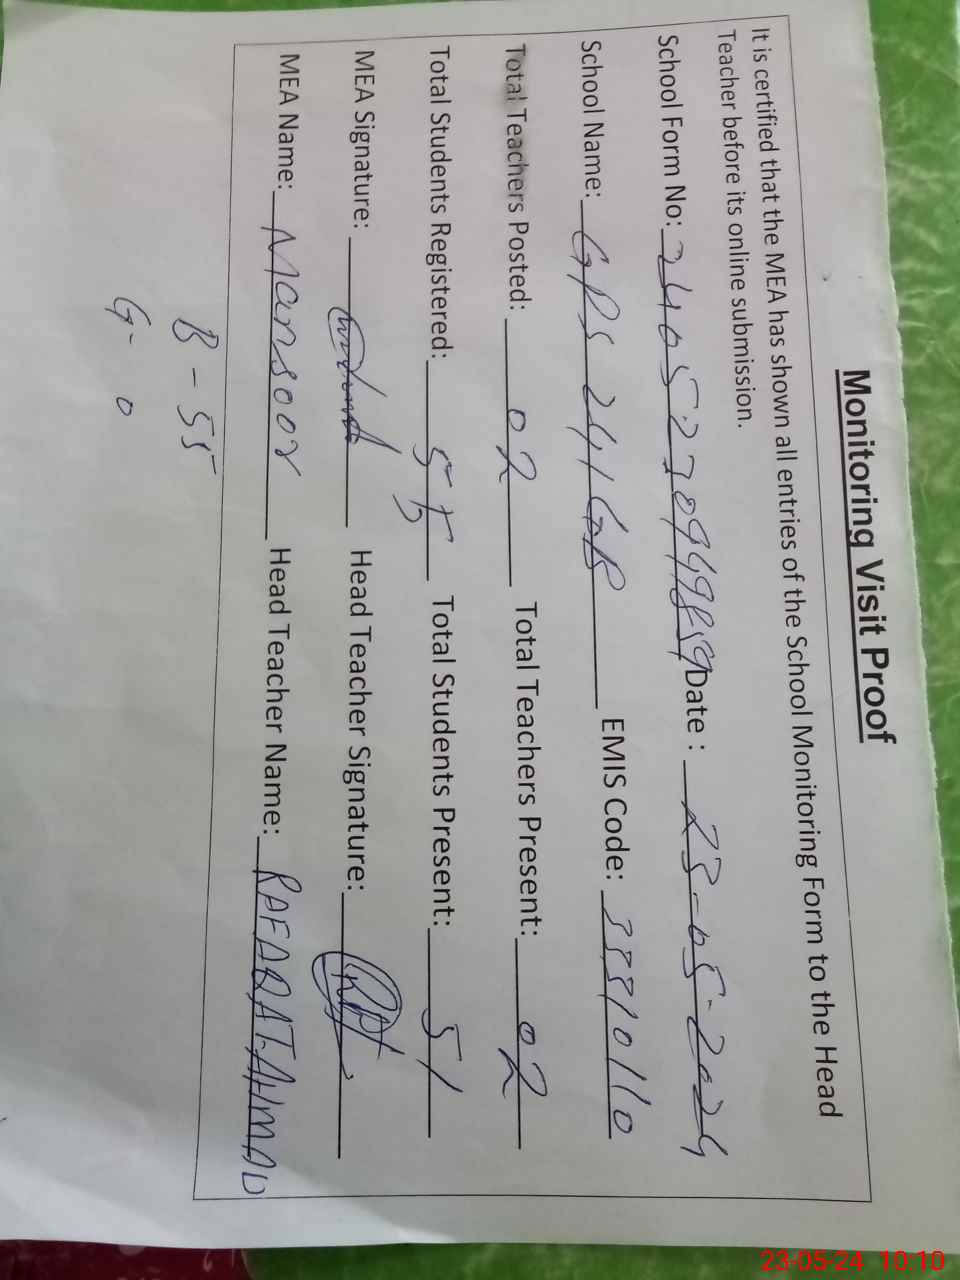 Monitoring Visit Proof
It is certified that the MEA has shown all entries of the School Monitoring Form to the Head
Teacher before its online submission.
School Form No: Date : 23-05-2024
School Name: GPS 241 GB EMIS Code: 33810110
Total Teachers Posted: 02 Total Teachers Present: 02
Total Students Registered: 55 Total Students Present: 51
MEA Signature: Head Teacher Signature:
MEA Name: Mansoor Head Teacher Name: RAFAQAT.AHMAD
B - 55
G - 0
23-05-24 10:10